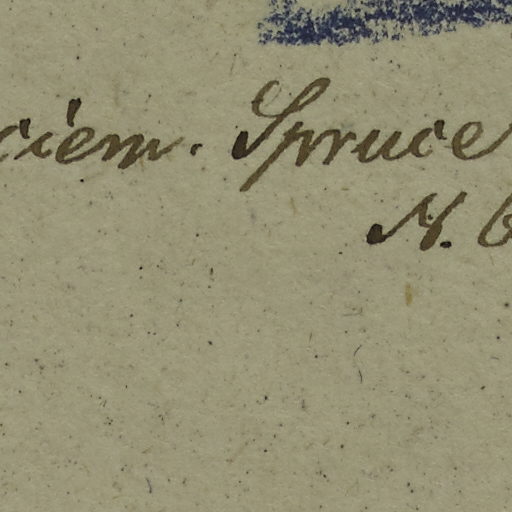 ciem. Spruce
N.